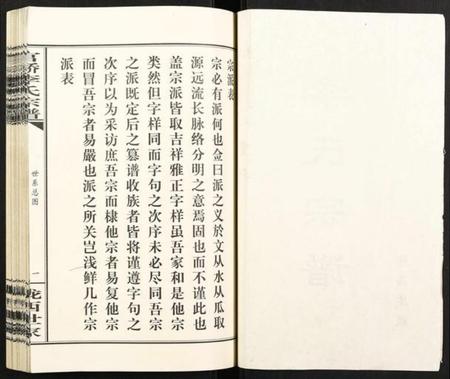 宗派表
宗必有派何也佥曰派之义於文从水从瓜取
源远流长脉络分明之意焉固也而不谨此也
盖宗派皆取吉祥雅正字样虽吾家和是他宗
类然但字样同而字句之次序未必尽同吾宗
之派既定后之纂谱收族者皆将谨遵字句之
次序以为采访庶吾宗而棣他宗者易复他宗
而冒吾宗者易嚴也派之所关岂浅鲜几作宗
派表
官桥李氏宗谱
世系总图
一
陇西世家
宗谱